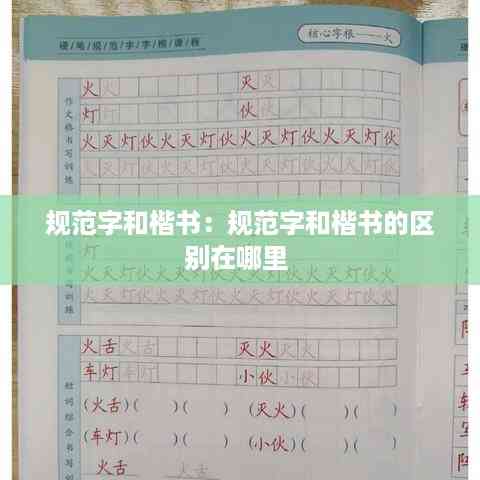 硬/笔/规/范/字/字/根/课/程
核心字根——火
作文格书写训练
火火 灭灭
灯 伙
火灭灯伙火灭灯伙火灭灯伙火灭灯伙
火灭灯伙火灭灯伙火灭灯伙火灭灯伙
规范字和楷书：规范字和楷书的区
别在哪里
火灭灯伙火灭灯伙火灭灯伙火灭灯伙
火灭灯伙火灭灯伙火灭灯伙火灭灯伙
组词综合书写训
火舌火舌 灭火灭火
车灯车灯 小伙小伙
(火舌)( )( ) (灭火)( )( )
(车灯)( )( ) (小伙)( )( )
火舌 火舌